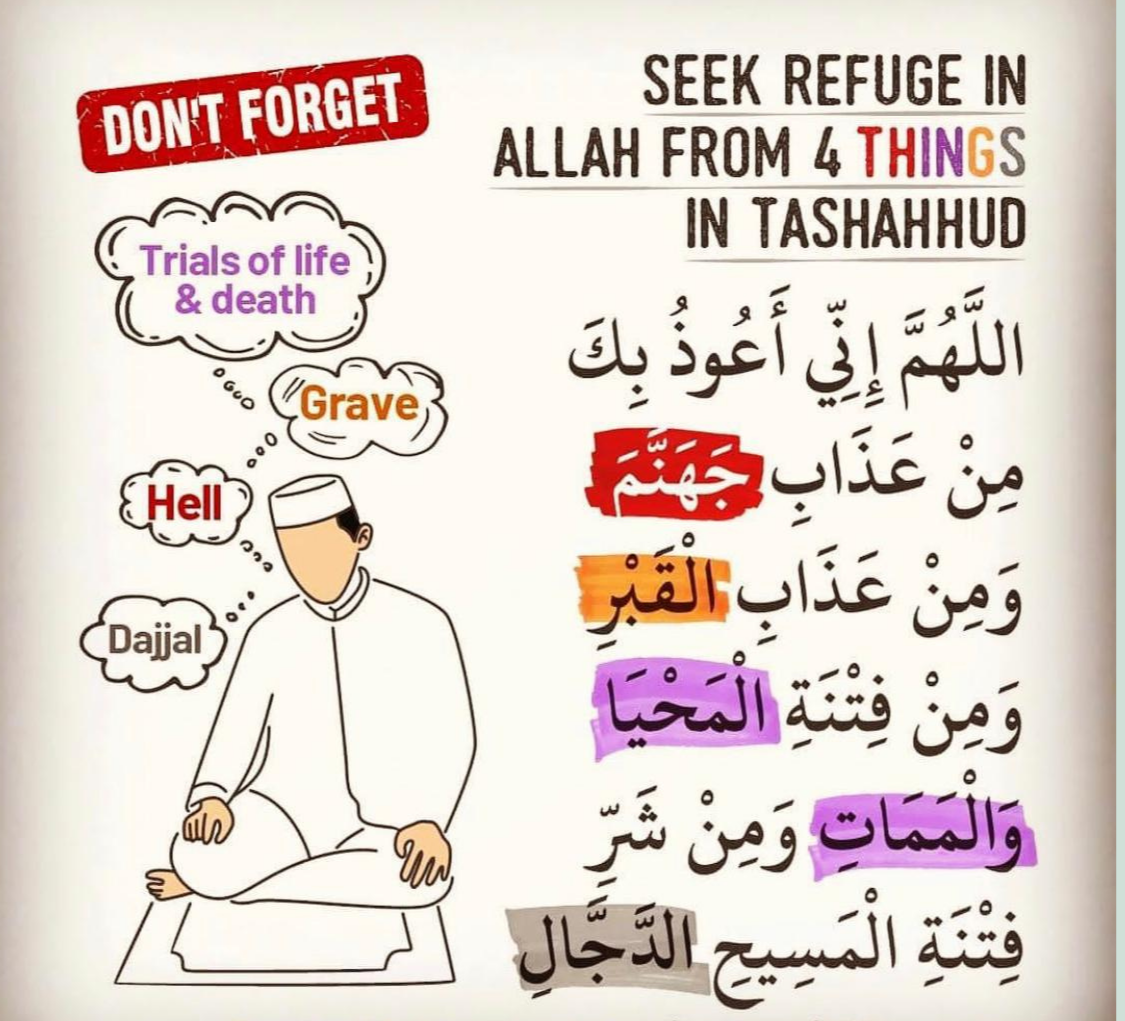 DON'T FORGET
SEEK REFUGE IN
ALLAH FROM 4 THINGS
IN TASHAHHUD
Trials of life
& death
Grave
Hell
Dajjal
اللَّهُمَّ إِنِّي أَعُوذُ بِكَ
مِنْ عَذَابِ جَهَنَّمَ
وَمِنْ عَذَابِ الْقَبْرِ
وَمِنْ فِتْنَةِ الْمَحْيَا
وَالْمَمَاتِ وَمِنْ شَرِّ
فِتْنَةِ الْمَسِيحِ الدَّجَّالِ